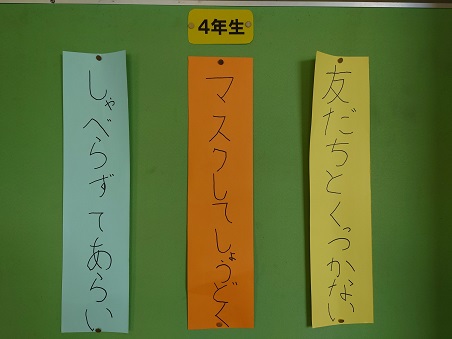 4年生
友だちとくっつかない
マスクしてしょうどく
しゃべらずてあらい